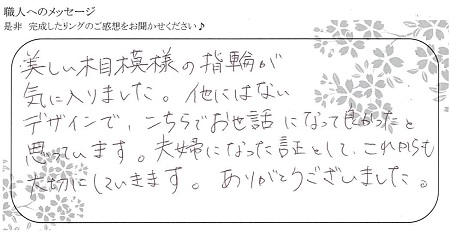 職人へのメッセージ
是非 完成したリングのご感想をお聞かせください♪
美しい木目模様の指輪が
気に入りました。他にはない
デザインで、こちらでお世話になって良かったと
思っています。夫婦になった証として、これからも
大切にしていきます。ありがとうございました。